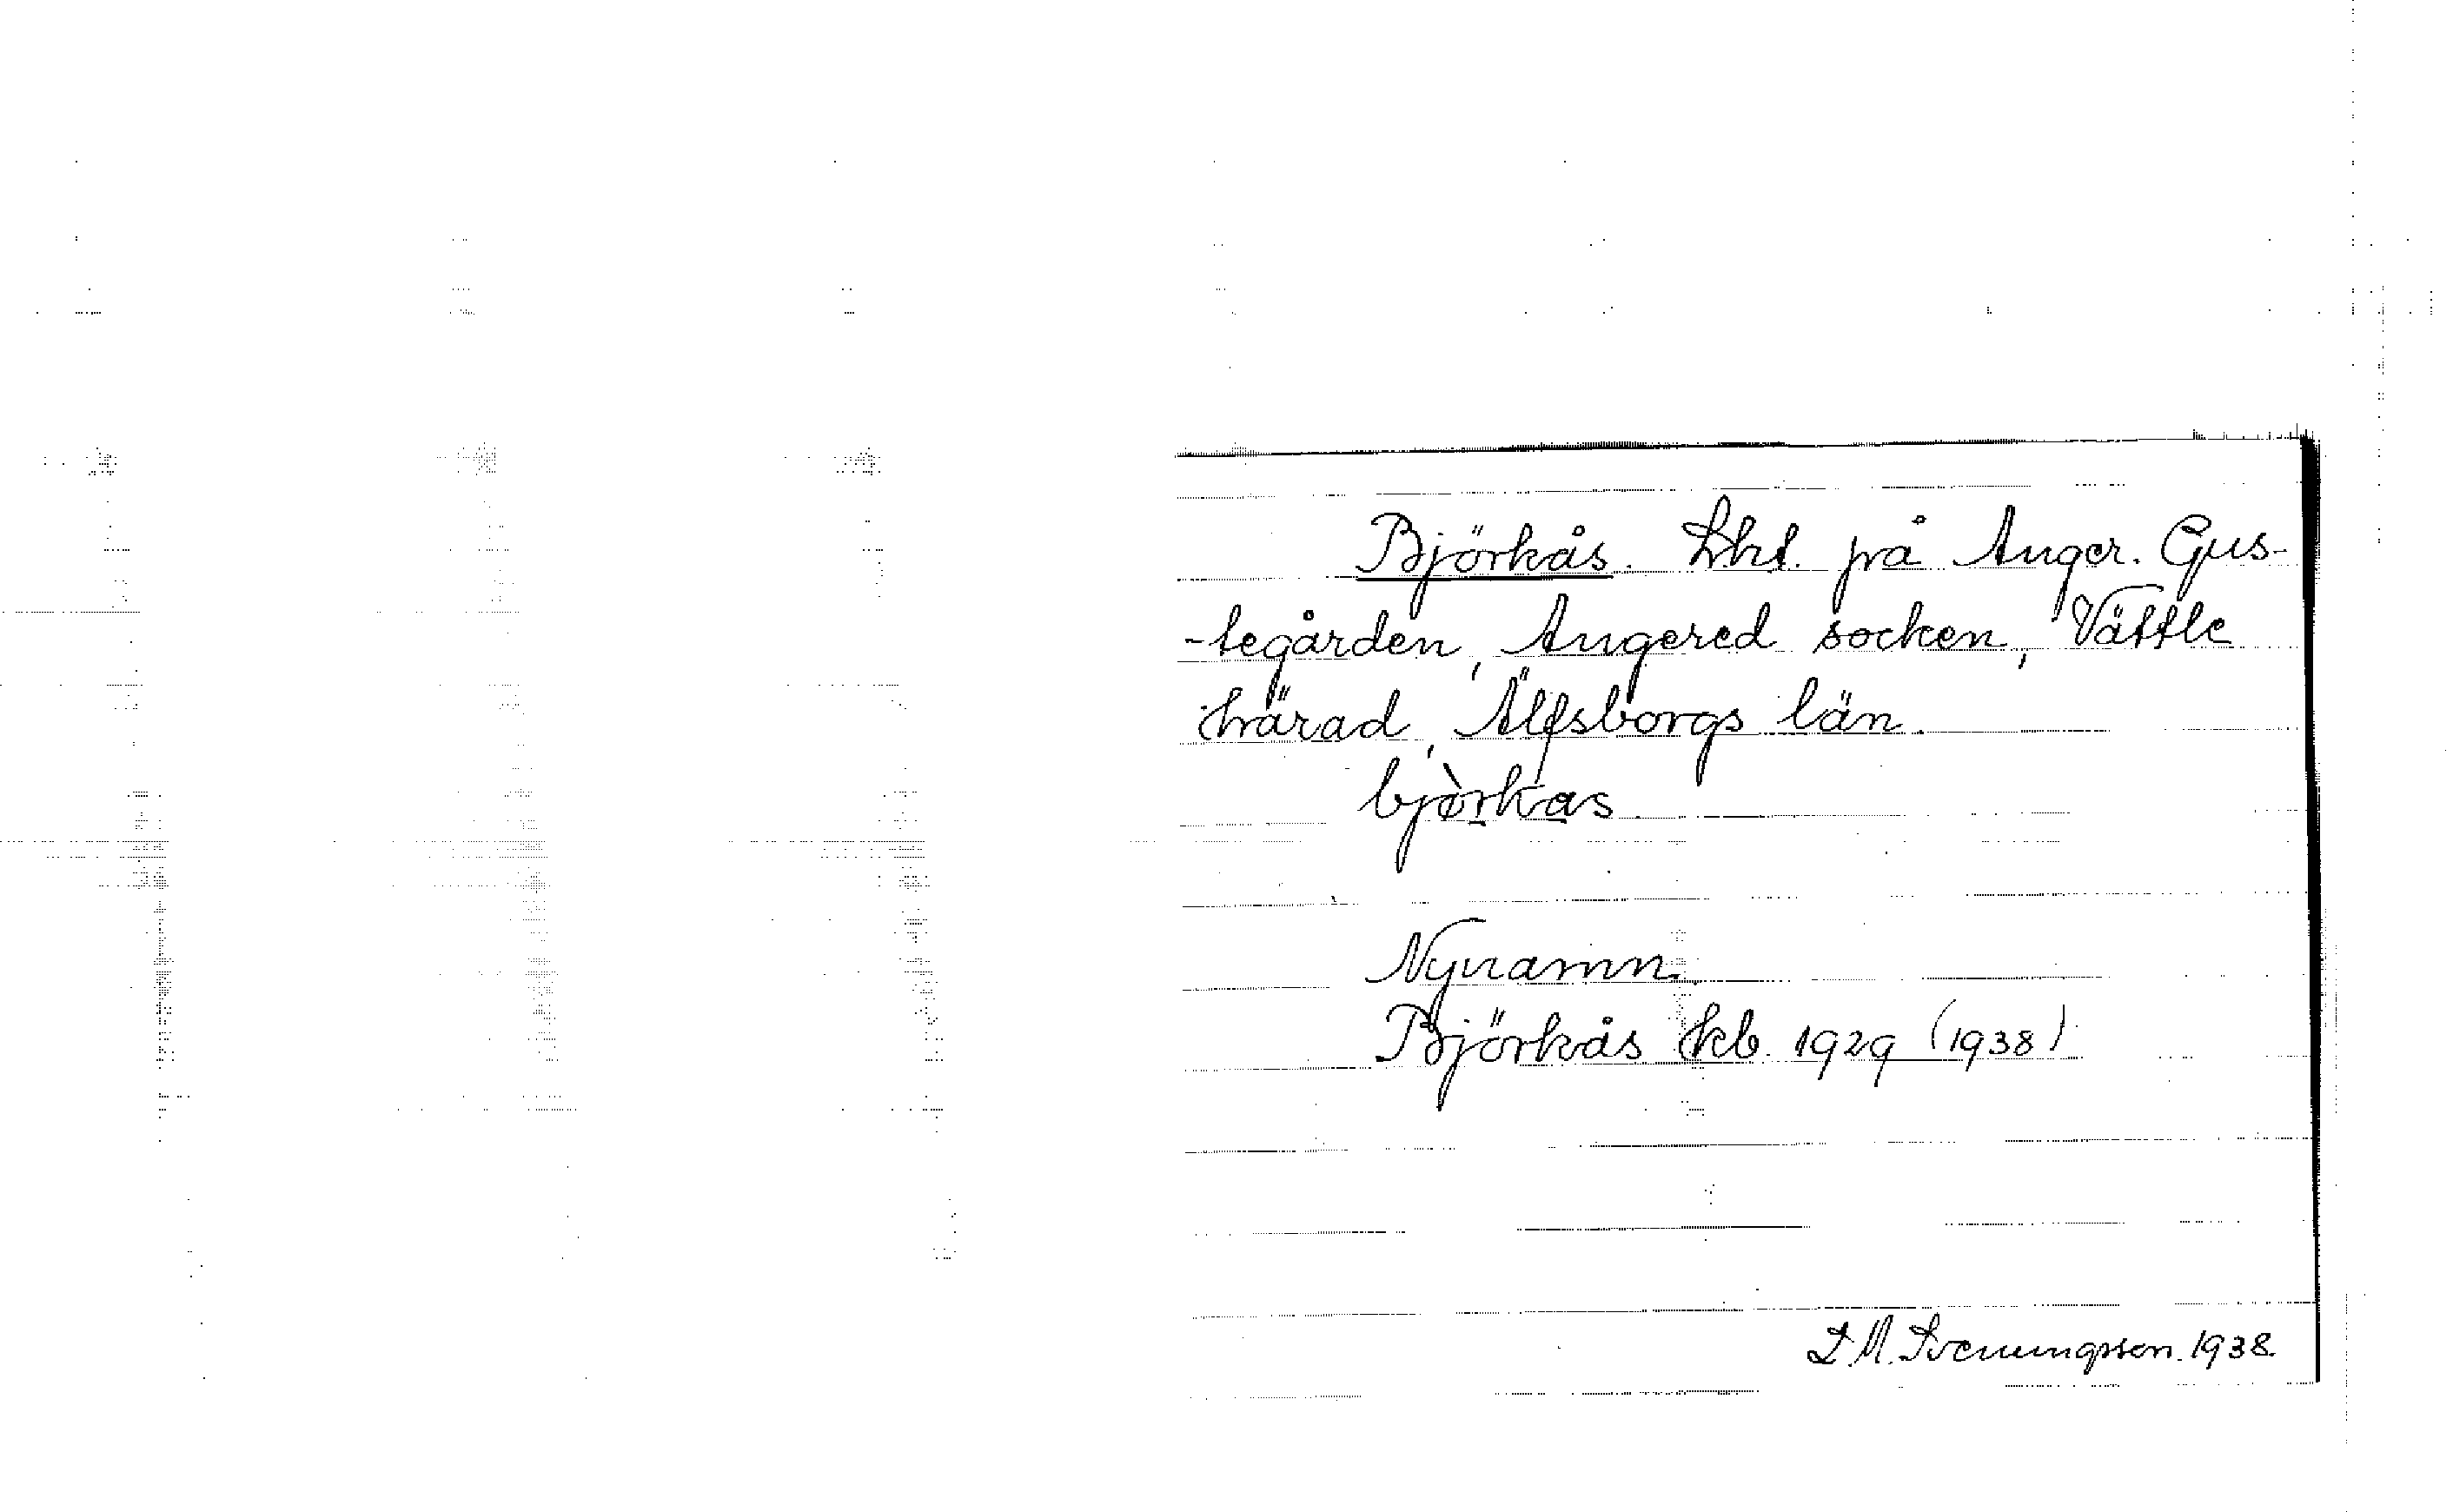 Björkås. Lht. på Anger. Gus-
-tegården, Angered socken, Vättle
härad, Älfsborgs län.
bjòrkas.
Nynamn.
Björkås kb. 1929 (1938)
D. M. Svenungsson. 1938.